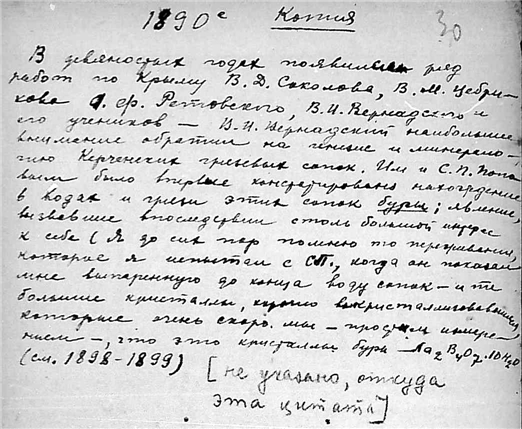 1890е Копия
30
В девяностых годах появился ряд
работ по Крыму В. Д. Соколова, В. М. Цебри-
кова О. Ф. Ретовского, В. И. Вернадского и
его учеников — В. И. Вернадский наибольшее
внимание обратил на генезис и минерало-
гию Керченских грязевых сопок. Им и С. П. Попо
вым было впервые констатировано нахождение
в водах и грязи этих сопок буры; явление,
вызвавшее впоследствии столь большой интерес
к себе (Я до сих пор помню то переживание,
которое я испытал с СП., когда он показал
мне выпаренную до конца воду сопок — и те
большие кристаллы, хорошо выкристаллизовавшиеся,
которые очень скоро мы — простым измере-
нием —, что это кристаллы буры — Na2B4O7.10H2O
(см. 1898-1899)
[не указано, откуда
эта цитата]